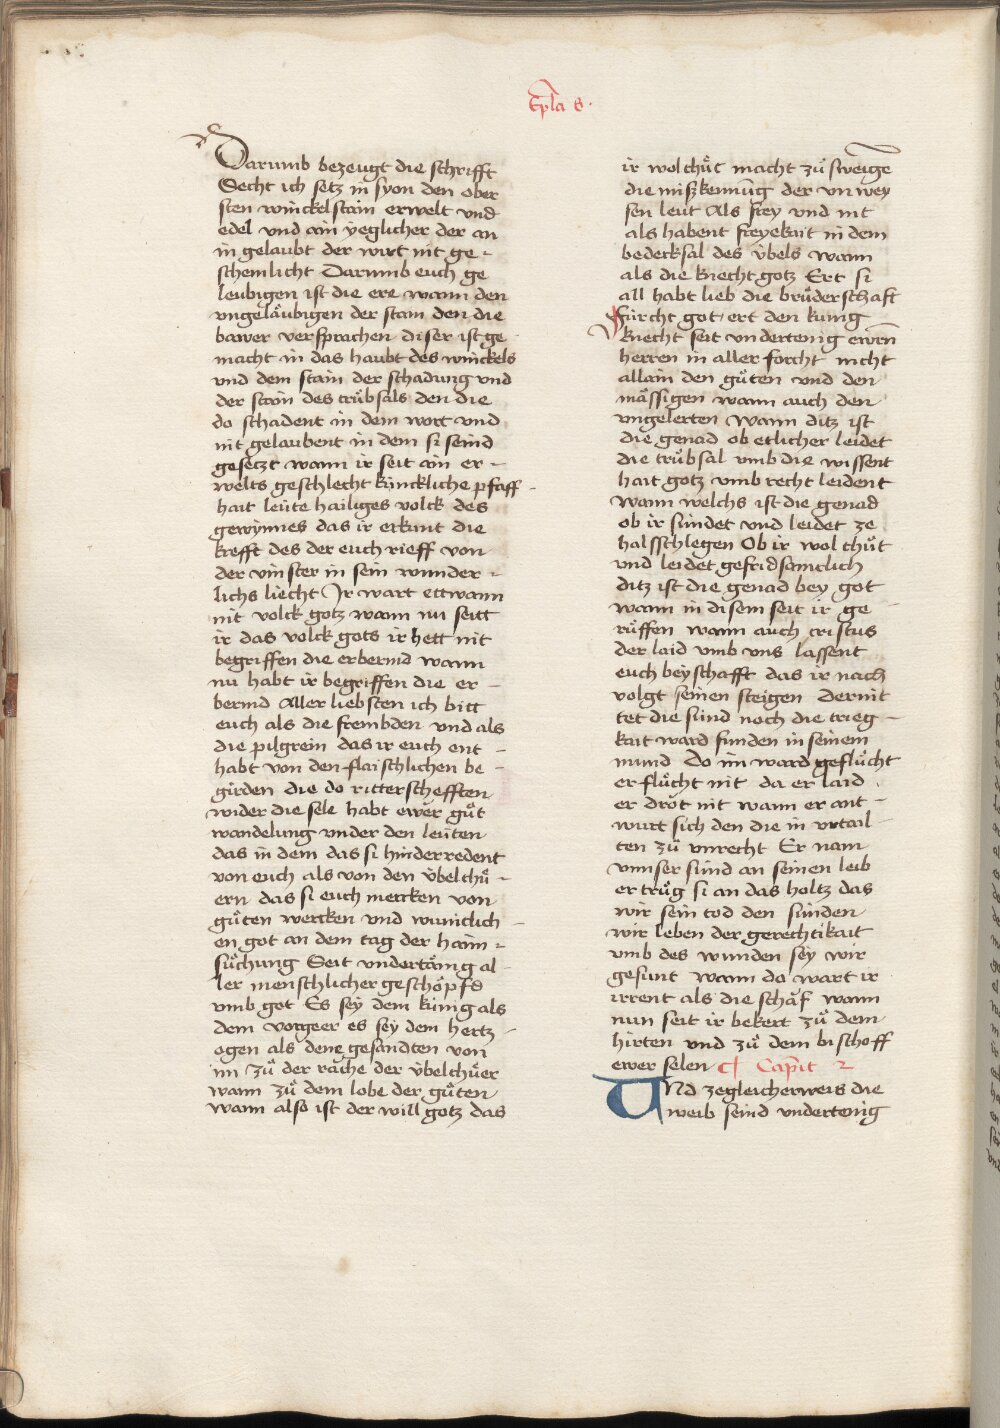 Epla s.
Darumb bezeugt die schrifft
Secht ich setz in syon den ober
sten winckelstain erwelt vnd
edel vnd ain yeglicher der an
in gelaubt der wirt nit ge-
schemlicht Darumb euch ge
leubigen ist die ere wann den
vngelaͤubigen der stain den die
bawer versprachen diser ist ge
macht in das haubt des winckels
vnd dem stain der schadung vnd
der stain des truͤbsals den die
do schadent in dem wort vnd
nit gelaubent in dem si seind
gesetzt wann ir seit ain er-
welts geschlecht künckliche pfaff-
hait leüte hailiges volck des
gewynnes das ir erkunt die
krefft des der euch rieff von
der vinster in sein wunder-
lichs liecht Ir wart ettwann
nit volck gotz wann nu seitt
ir das volck gots ir hett nit
begriffen die erbermd wann
nu habt ir begriffen die er-
bermd Aller liebsten ich bitt
euch als die frembden vnd als
die pilgrein das ir euch ent-
habt von den flaischlichen be-
girden die do ritterschefften
wider die sele habt ewer guͤt
wandelung vnder den leuten
das in dem das si hinderredent
von euch als von den vͤbelchuͤ-
ern das si euch mercken von
guͤten wercken vnd wunͤclich-
en got an dem tag der haim-
suͤchung Seit vndertaͤnig al-
ler menschlicher geschoͤpfd
vmb got Es sey dem künig als
dem vorgeer es sey dem hertz-
ogen als dene gesandten von
im zuͤ der rache der vͤbelchuͤer
wann zuͤ dem lobe der guͤten
wann also ist der will gotz das
ir wolchuͤt macht zuͤ sweige
die miszkennūg der vnwey
sen leut Als frey vnd nit
als habent freyekait in dem
bedecksal des vͤbels wann
als die knecht gotz Ert si
all habt lieb die bruͤderschaft
fürcht got ert den kunig
knecht seit vndertenig ewrn
herren in aller forcht nicht
allain den guͤten vnd den
maͤssigen wann auch den
vngelerten Wann ditz ist
die genad ob etlicher leidet
die truͤbsal vmb die wissent
hait gotz vmb recht leident
Wann welchs ist die genad
ob ir sündet vnd leidet ze
halsschlegen Ob ir wol chuͤt
vnd leidet gefridsamclich
ditz ist die genad bey got
wann in disem seit ir ge
ruͤffen wann auch cristus
der laid vmb vns lassent
euch beyschafft das ir nach
volgt seinen steigen der nit
tet die sünd noch die trieg-
kait ward funden in seinem
mund Do im ward gefluͤcht
er fluͤcht nit da er laid
er drot nit wann er ant-
wurt sich den die in vrtail-
ten zuͤ vnrecht Er nam
vnnser sünd an seinen leib
er truͤg si an das holtz das
wir sein tod den sünden
wir leben der gerechtikait
vmb des wunden sey wir
gesunt wann da wart ir
irrent als die schaf wann
nun seit ir bekert zuͤ dem
hirten vnd zuͤ dem bischoff
ewer selen Capit 2
Vnd zegleicherweis die
weib seind vndertenig